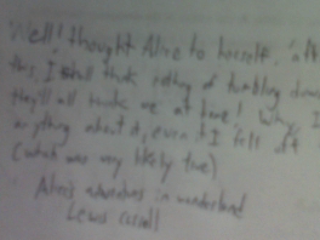 'Well!' thought Alice to herself, 'aft
this, I shall think nothing of tumbling down
they'll all think me at home! Why, I
anything about it, even if I fell off
(which was very likely true)
Alice's adventures in wonderland
Lewis Carroll